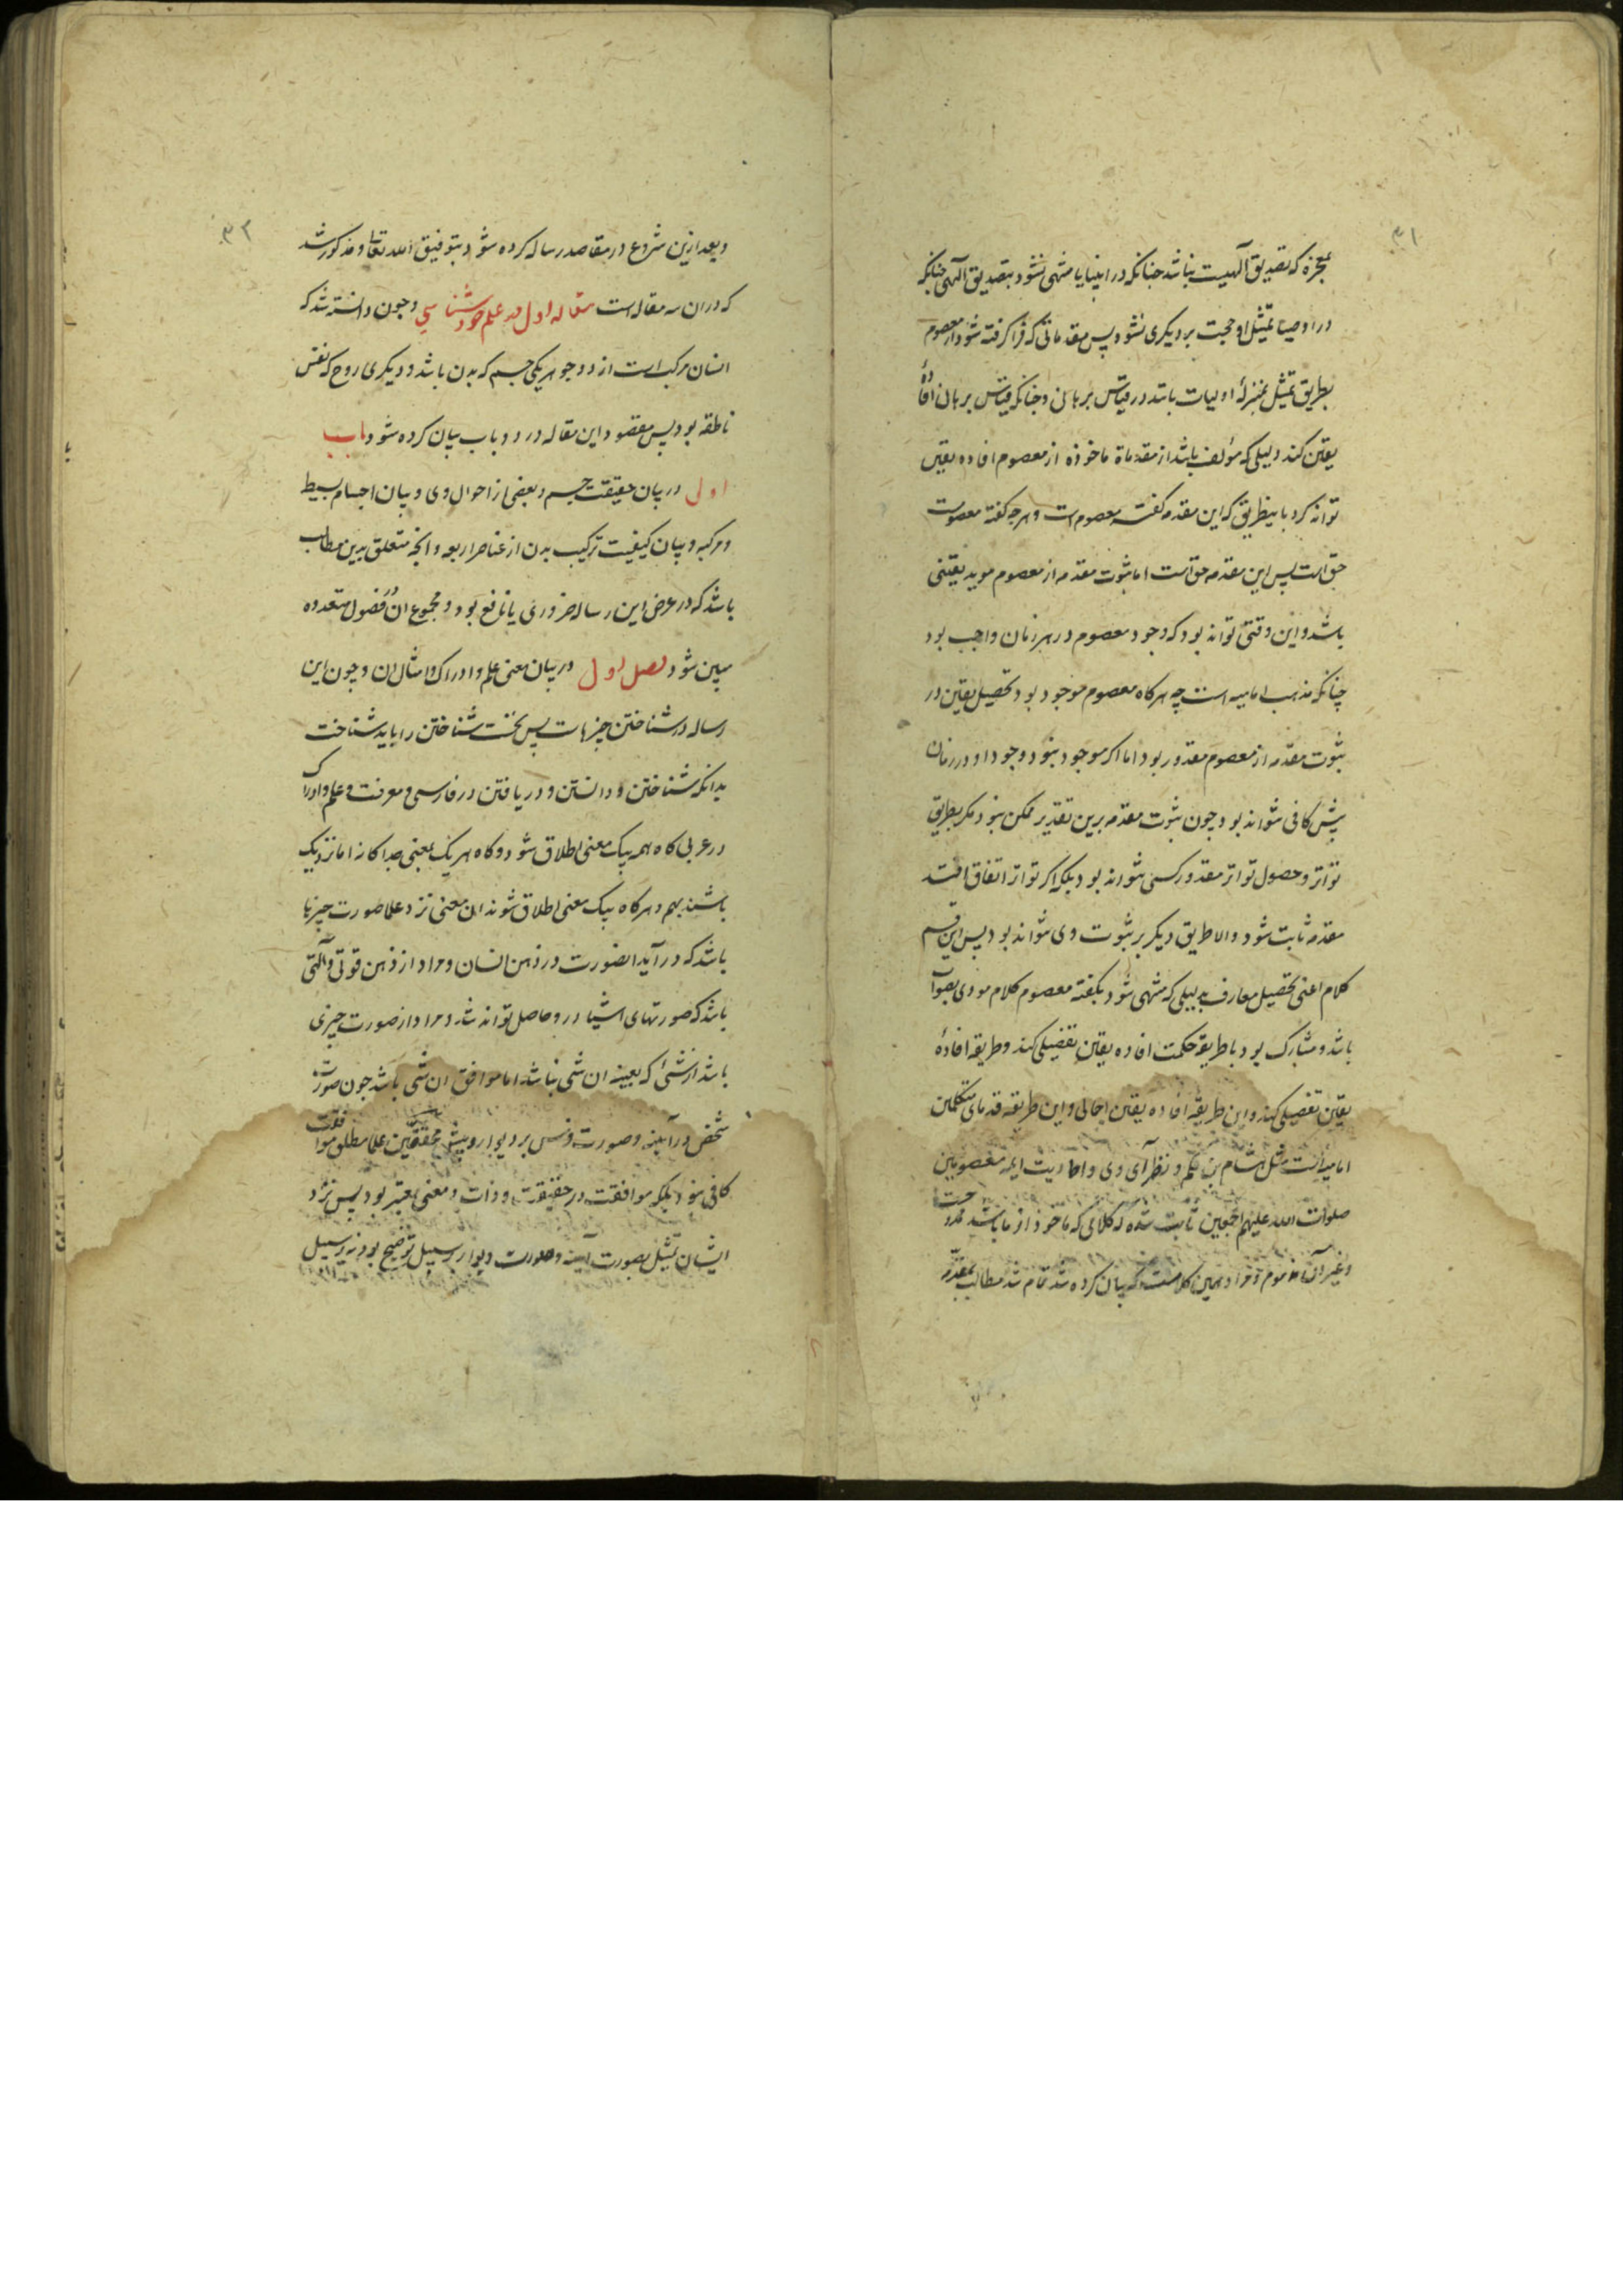 ۳۱
بمعجزه که تصدیق آلهیست نباشد چنانکه در انبیا یا منتهی نشود بتصدیق آلهی چنانکه
در اوصیا تمثل او حجت بر دیکری نشود پس مقدماتی که فرا کرفته شود از معصوم
بطریق تمثل بمنزلهٔ اولیات باشد در قیاس برهانی و چنانکه قیاس برهان افادهٔ
یقین کند دلیلی که مؤلف باشد از مقدماة ماخوذه از معصوم افاده یقین
تواند کرد باینطریق که این مقدمه کفته معصوم است و هرچه کفته معصومست
حق است پس این مقدمه حق است اما ثبوت مقدمه از معصوم موید یقینی
باشد و این وقتی تواند بود که وجود معصوم در هر زمان واجب بود
چنانکه مذهب امامیه است چه هرکاه معصوم موجود بود تحصیل یقین در
ثبوت مقدمه از معصوم مقدور بود اما اکر موجود نبود وجود او در زمان
پیش کافی نتواند بود چون ثبوت مقدمه برین تقدیر ممکن نبود مکر بطریق
تواتر و حصول تواتر مقدور کسی نتواند بود بلکه اکر تواتر اتفاق افتد
مقدمه ثابت شود والا طریق دیکر بر ثبوت وی نتواند بود پس این قسم
کلام اعنی تحصیل معارف بدلیلی که منتهی شود بکفته معصوم کلام مودی بصواب
باشد و مشارک بود با طریقه حکمت افاده یقین تفصیلی کند و طریقه افادهٔ
یقین تفصیلی کند و این طریقه افاده یقین اجمالی و این طریقه قدمای متکلمین
امامیه است مثل هشام بن حکم و نظرآی وی و احادیث ایمه معصومین
صلوات الله علیهم اجمعین ثابت شده که کلامی که ماخوذ از ما باشد ممدوحست
و غیر آن مذموم و مراد همین کلامست که بیان کرده شد تمام شد مطالب مقدمه
۳۲
و بعد ازین شروع در مقاصد رساله کرده شود بتوفیق الله تعالی و مذکور شد
که در ان سه مقاله است مقاله اول در علم خود شناسی و چون دانسته شد که
انسان مرکب است از دو جوهر یکی جسم که بدن باشد و دیکری روح که نفس
ناطقه بود پس مقصود این مقاله در دو باب بیان کرده شود باب
اول در بیان حقیقت جسم و بعضی از احوال وی و بیان اجسام بسیط
و مرکبه و بیان کیفیت ترکیب بدن از عناصر اربعه و انچه متعلق بدین مطالب
باشد که در عرض این رساله ضروری یا نافع بود و مجموع ان در فصول متعدده
مبین شود فصل اول در بیان معنی علم و ادراک و امثال ان و چون این
رساله در شناختن چیزهاست پس نخست شناختن را باید شناخت
بدانکه شناختن و دانستن و دریافتن در فارسی و معرفت و علم و ادراک
در عربی کاه همه بیک معنی اطلاق شود و کاه هر یک بمعنی جداکانه اما نزدیک
باشند بهم و هرکاه بیک معنی اطلاق شوند ان معنی نزد علما صورت چیزها
باشد که در آید انصورت در ذهن انسان و مراد از ذهن قوتی و آلتی
باشد که صورتهای اشیا در و حاصل تواند شد و مراد از صورت چیزی
باشد از شئ که بعینه ان شی نباشد اما موافق ان شی باشد چون صورت
شخص در آینه و صورت فرس بر دیوار و پیش محققین علما مطلق موافقت
کافی نبود بلکه موافقت در حقیقت و ذات و معنی معتبر بود پس نزد
ایشان تمثیل بصورت آینه و صورت دیوار بر سبیل توضیح بود نه بر سبیل